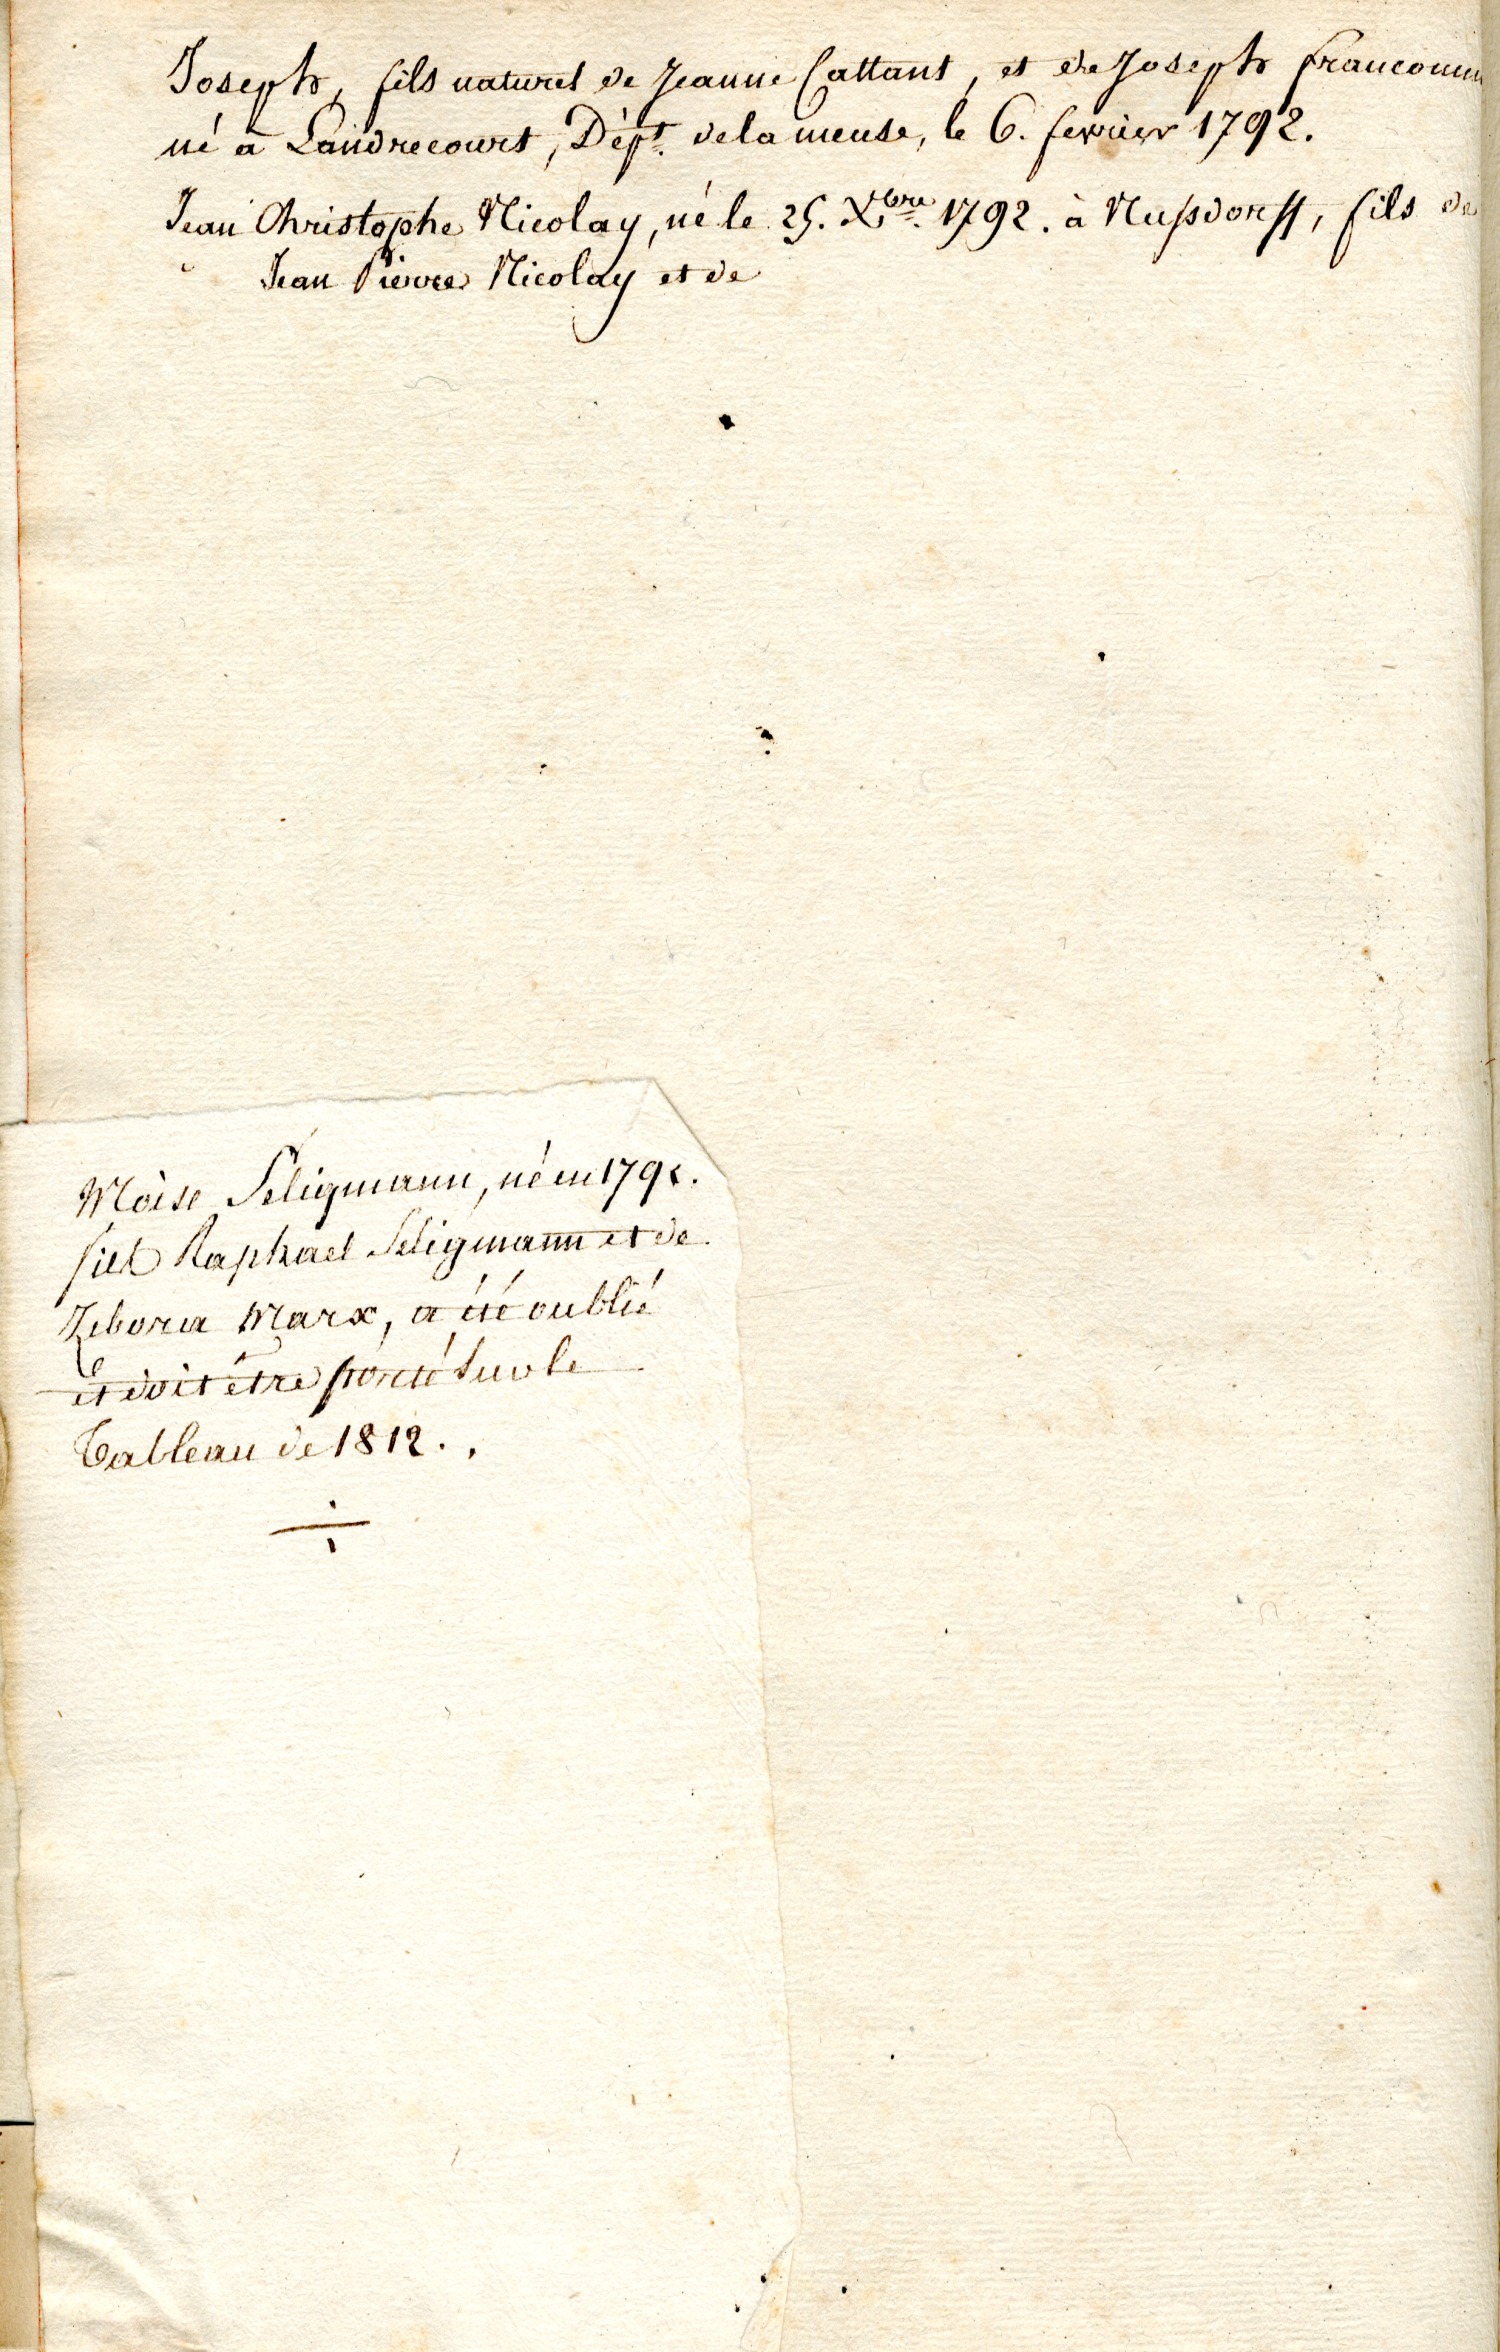 Joseph, fils naturel de Jeanne Cattant, et de Joseph francomm
né à Landrecourt, Dépt. de la meuse, le 6. fevrier 1792.
Jean Christophe Nicolay, né le 25. Xbre 1792. à Nussdorff, fils de
Jean Pierre Nicolay et de
Moïse Seligmann, né en 1792.
fils Raphael Seligmann et de
Zebora Marx, a été oublié
et doit être porté sur le
Tableau de 1812.